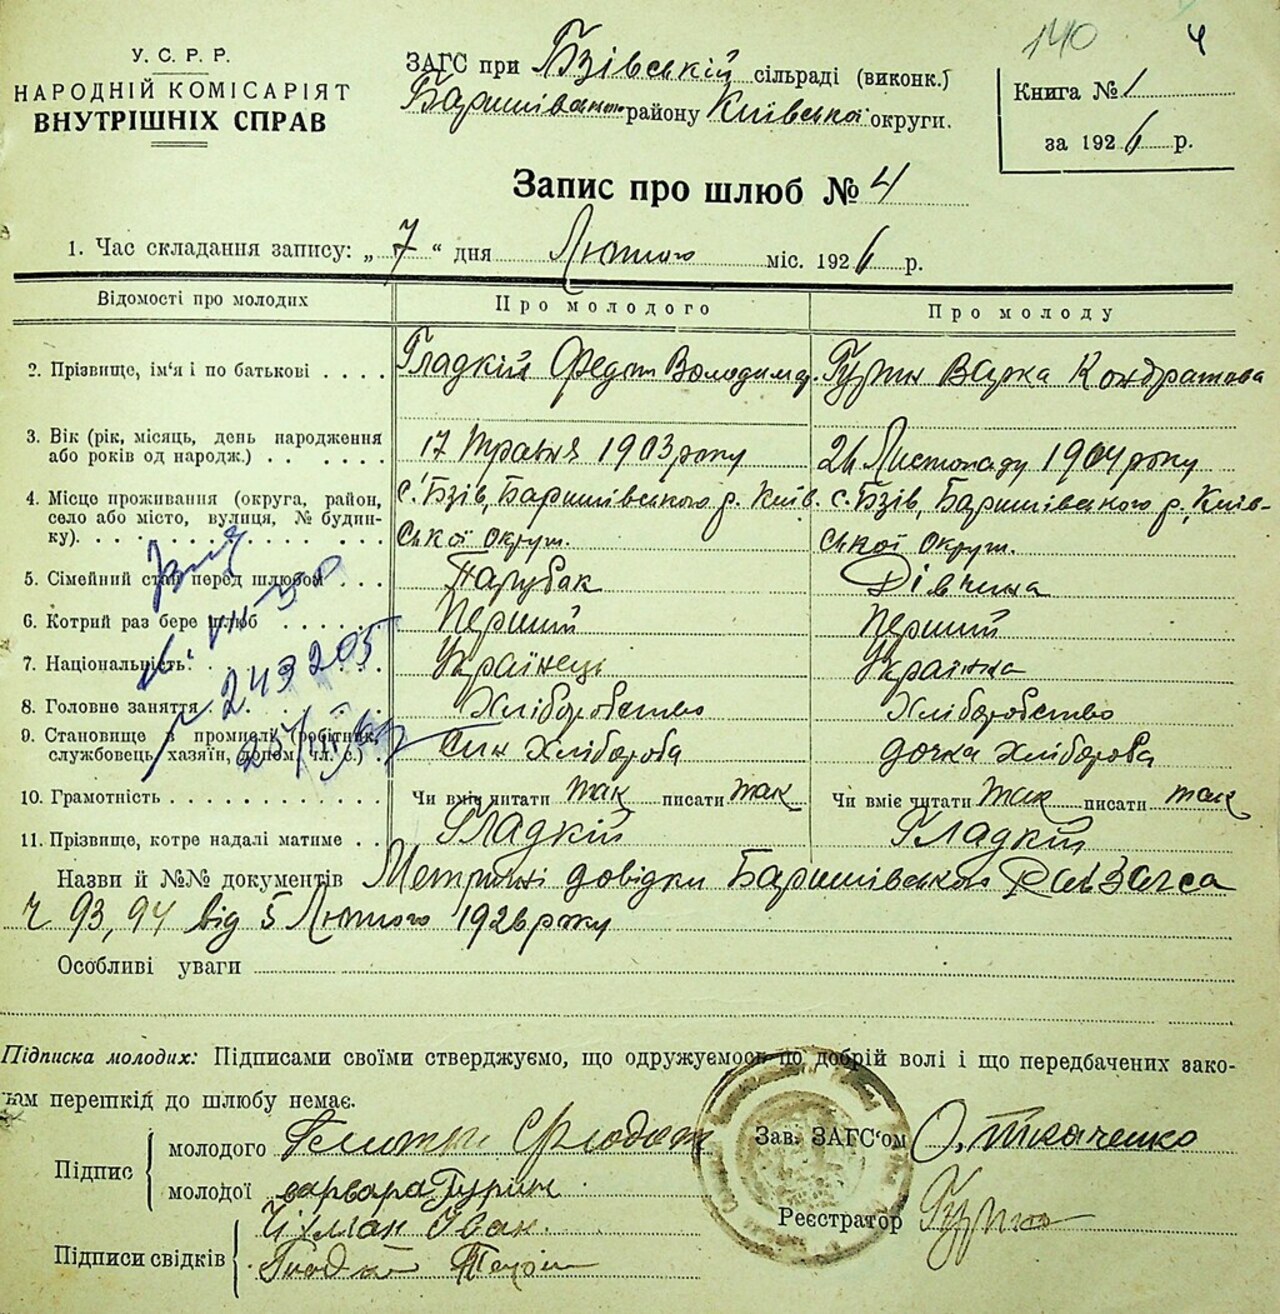 140 4
У. С. Р. Р.
НАРОДНІЙ КОМІСАРІЯТ
ВНУТРІШНІХ СПРАВ
ЗАГС при Бзівській сільраді (виконк.)
Баришівського району Київської округи.
Книга № 1
за 1926 р.
Запис про шлюб № 4
1. Час складання запису: „7“ дня Лютого міс. 1926 р.
Відомості про молодих Про молодого Про молоду
2. Прізвище, ім'я і по батькові . . . . Гладкій Федот Володимір. Гурин Варка Кондратова
3. Вік (рік, місяць, день народження
або років од народж.) . . . . . . 17 Травня 1903 року 26 Листопаду 1904 року
4. Місце проживання (округа, район, с. Бзів, Баришівського р. Київ. с. Бзів, Баришівського р. Київ-
село або місто, вулиця, № будин-
ку). . . . . . . . . . . . . . ської округи. ської округи.
5. Сімейний стан перед шлюбом . . . Парубак Дівчина
6. Котрий раз бере шлюб . . . . . . Перший Перший
7. Національність. . . . . . . . . Українець Українка
8. Головне заняття . . . . . . . . Хліборобство Хліборобство
9. Становище в промислі (робітник,
службовець, хазяїн, допом. чл. с.) . Син Хлібороба дочка Хлібороба
243205
10. Грамотність . . . . . . . . . . . Чи вміє читати так писати так Чи вміє читати так писати так
11. Прізвище, котре надалі матиме . . Гладкій Гладкій
Назви й №№ документів Метричні довідки Баришівського РайЗагса
ч 93, 94 від 5 Лютого 1926 року
Особливі уваги
Підписка молодих: Підписами своїми стверджуємо, що одружуємось по добрій волі і що передбачених зако-
ном перешкід до шлюбу немає.
Підпис
молодого
молодої варвара Гурин
Підписи свідків
Іван
Зав. ЗАГС'ом О. Ткаченко
Реєстратор